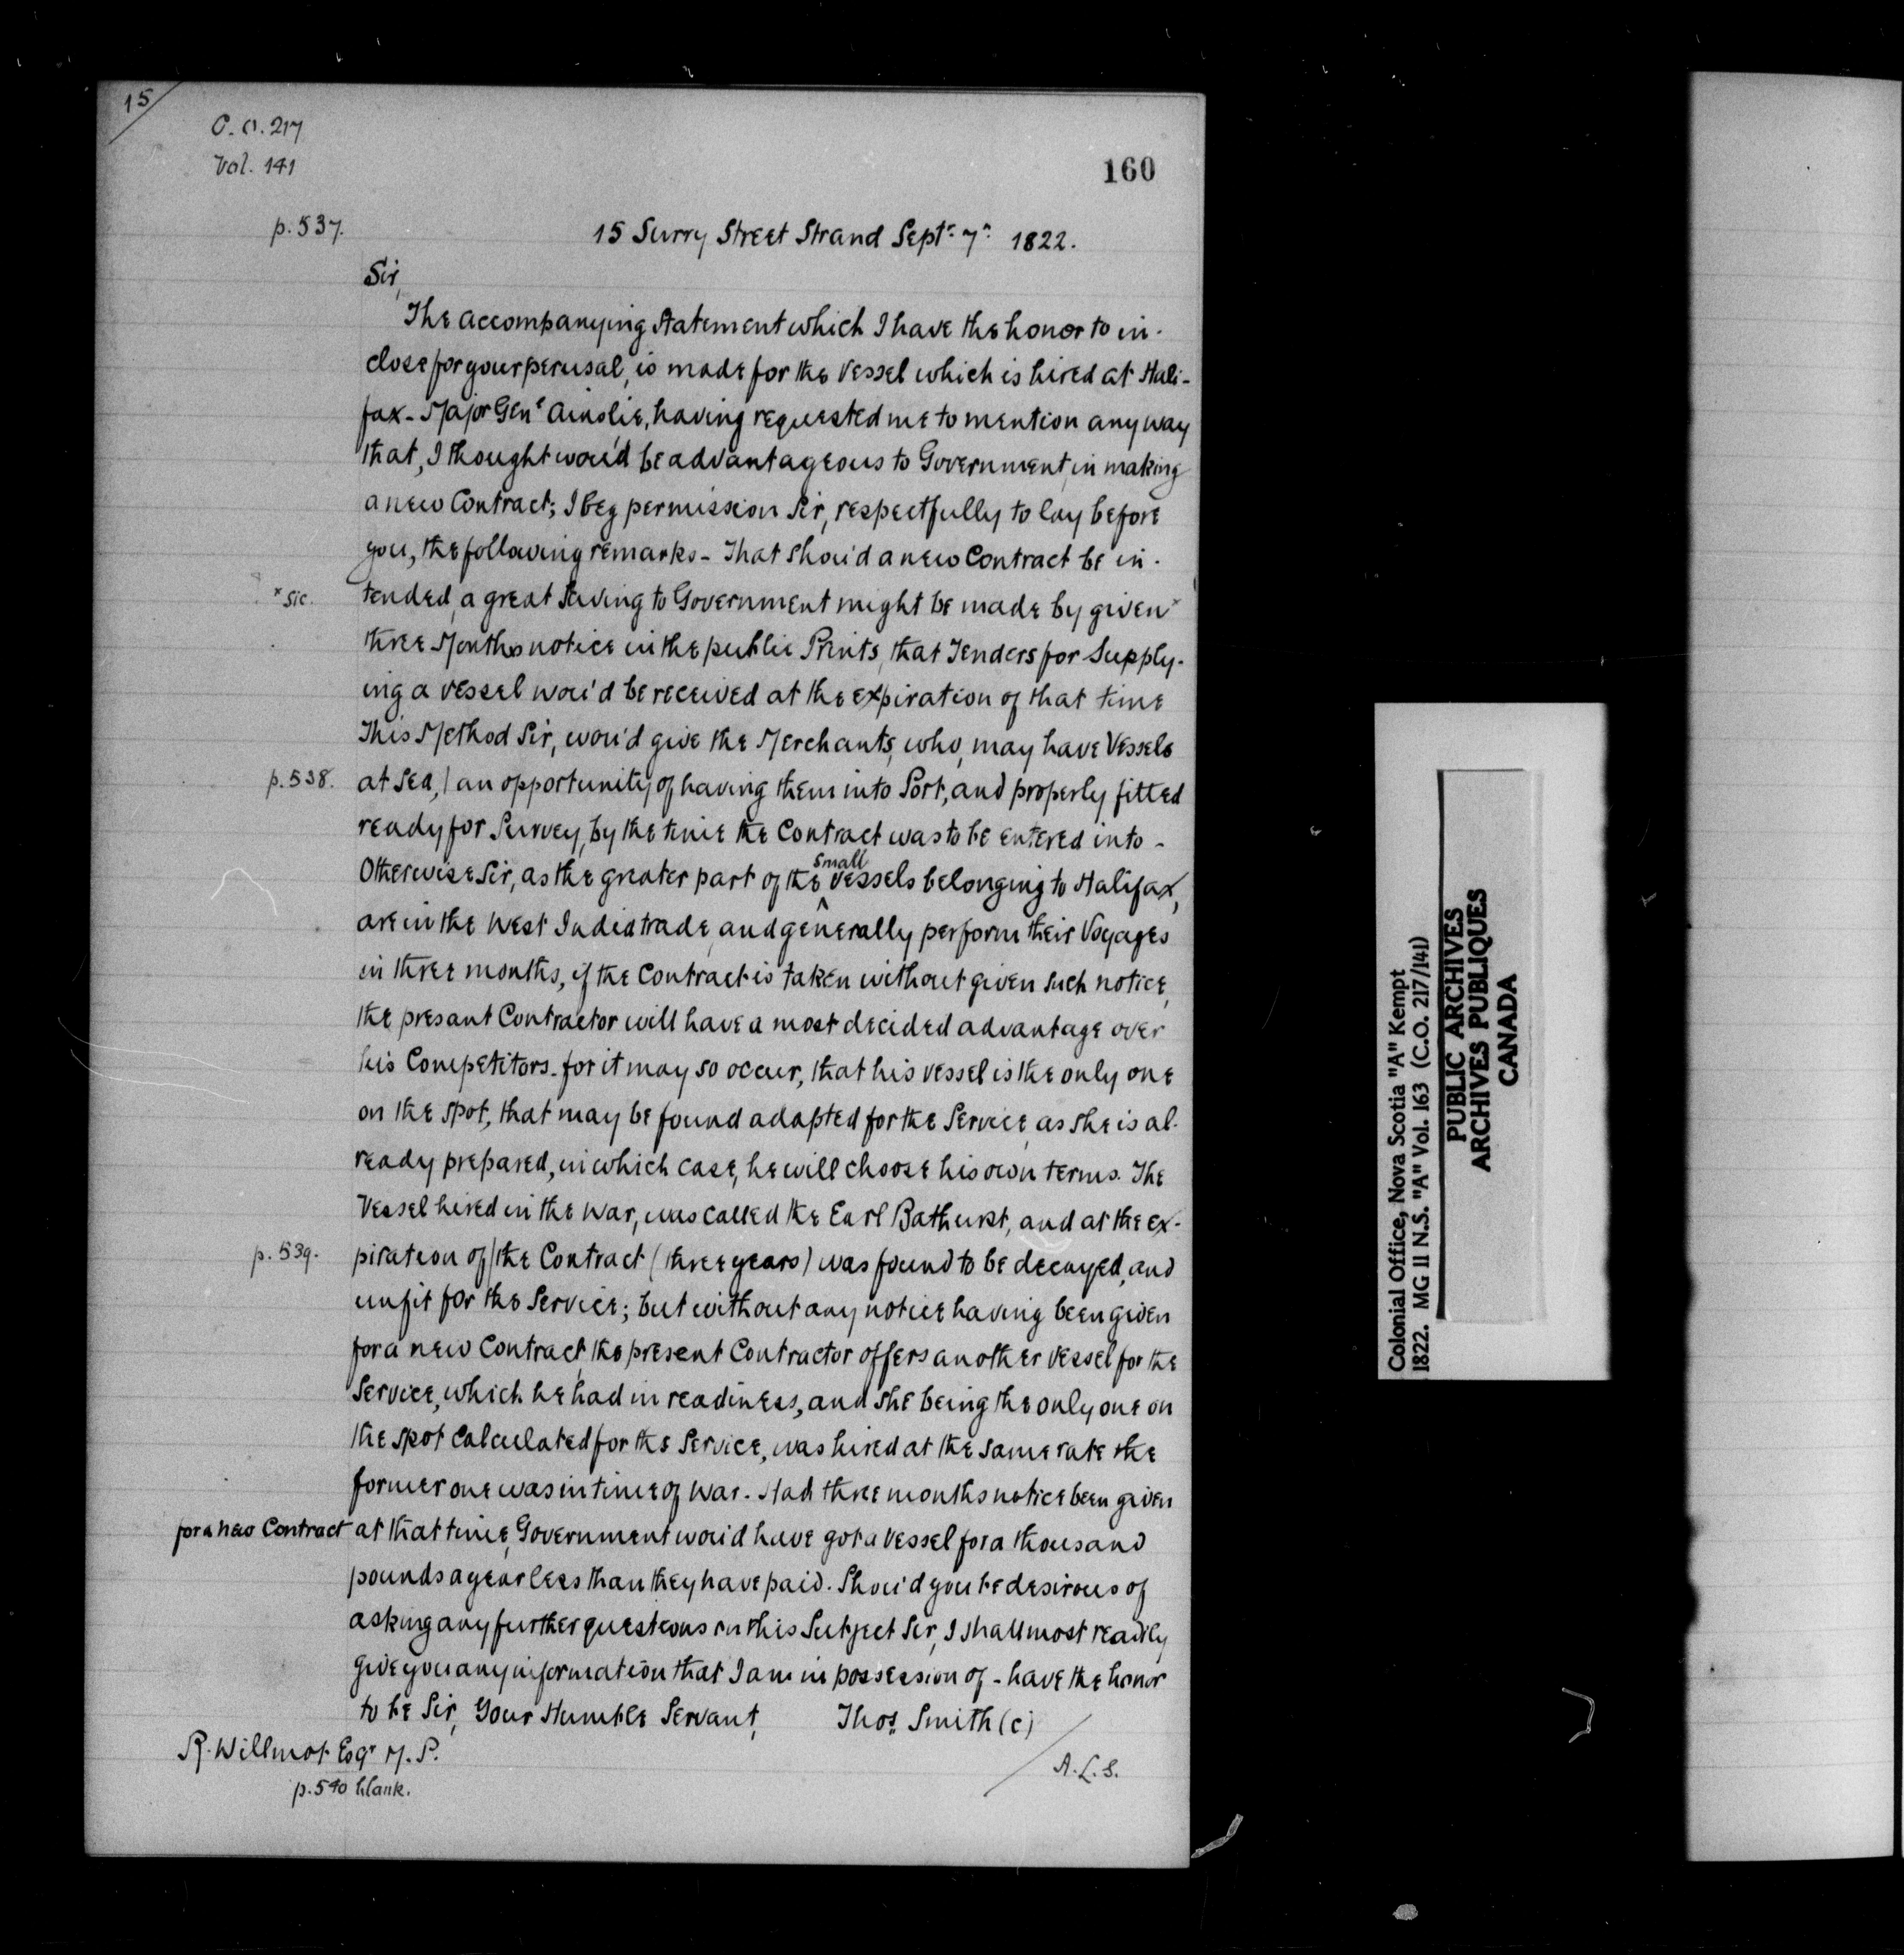 15
C.O. 217
Vol. 141
160
p. 537.
15 Surry Street Strand Septr. 7n. 1822.
Sir,
The accompanying statement which I have the honor to in-
close for your perusal, is made for the vessel which is hired at Hali-
fax - Major Genl Ainslie, having requested me to mention any way
that, I thought wou'd be advantageous to Government, in making
a new Contract; I beg permission Sir, respectfully to lay before
you, the following remarks - That shou'd a new Contract be in-
* sic.
tended, a great Saving to Government might be made by given*
three Months notice in the public Prints, that Tenders for Supply-
ing a vessel wou'd be received at the expiration of that time
This Method Sir, wou'd give the Merchants, who, may have Vessels
p. 538.
at Sea, / an opportunity of having them into Port, and properly fitted
ready for Survey, by the time the Contract was to be entered into -
Otherwise Sir, as the greater part of the small vessels belonging to Halifax,
are in the West India trade, and generally perform their Voyages
in three months, if the Contract is taken without given such notice,
the presant Contractor will have a most decided advantage over
his Competitors - for it may so occur, that his vessel is the only one
on the spot, that may be found adapted for the Service, as she is al-
ready prepared, in which case, he will choose his own terms. The
Vessel hired in the War, was called the Earl Bathurst, and at the ex-
p. 539.
piration of / the Contract (three years) was found to be decayed, and
unfit for the Service; but without any notice having been given
for a new Contract, the present Contractor offers another vessel for the
Service, which he had in readiness, and she being the only one on
the spot calculated for the Service, was hired at the same rate the
former one was in time of War. Had three months notice been given
for a new Contract at that time, Government wou'd have got a vessel for a thousand
pounds a year less than they have paid. Shou'd you be desirous of
asking any further questions on this Subject Sir, I shall most readily
give you any information that I am in possession of - have the honor
to be Sir, Your Humble Servant, Thos. Smith (c)
R. Willmot Esqr M.P.
A.L.S.
p. 540 blank.
Colonial Office, Nova Scotia "A" Kempt
1822. MG 11 N.S. "A" Vol. 163 (C.O. 217/141)
PUBLIC ARCHIVES
ARCHIVES PUBLIQUES
CANADA